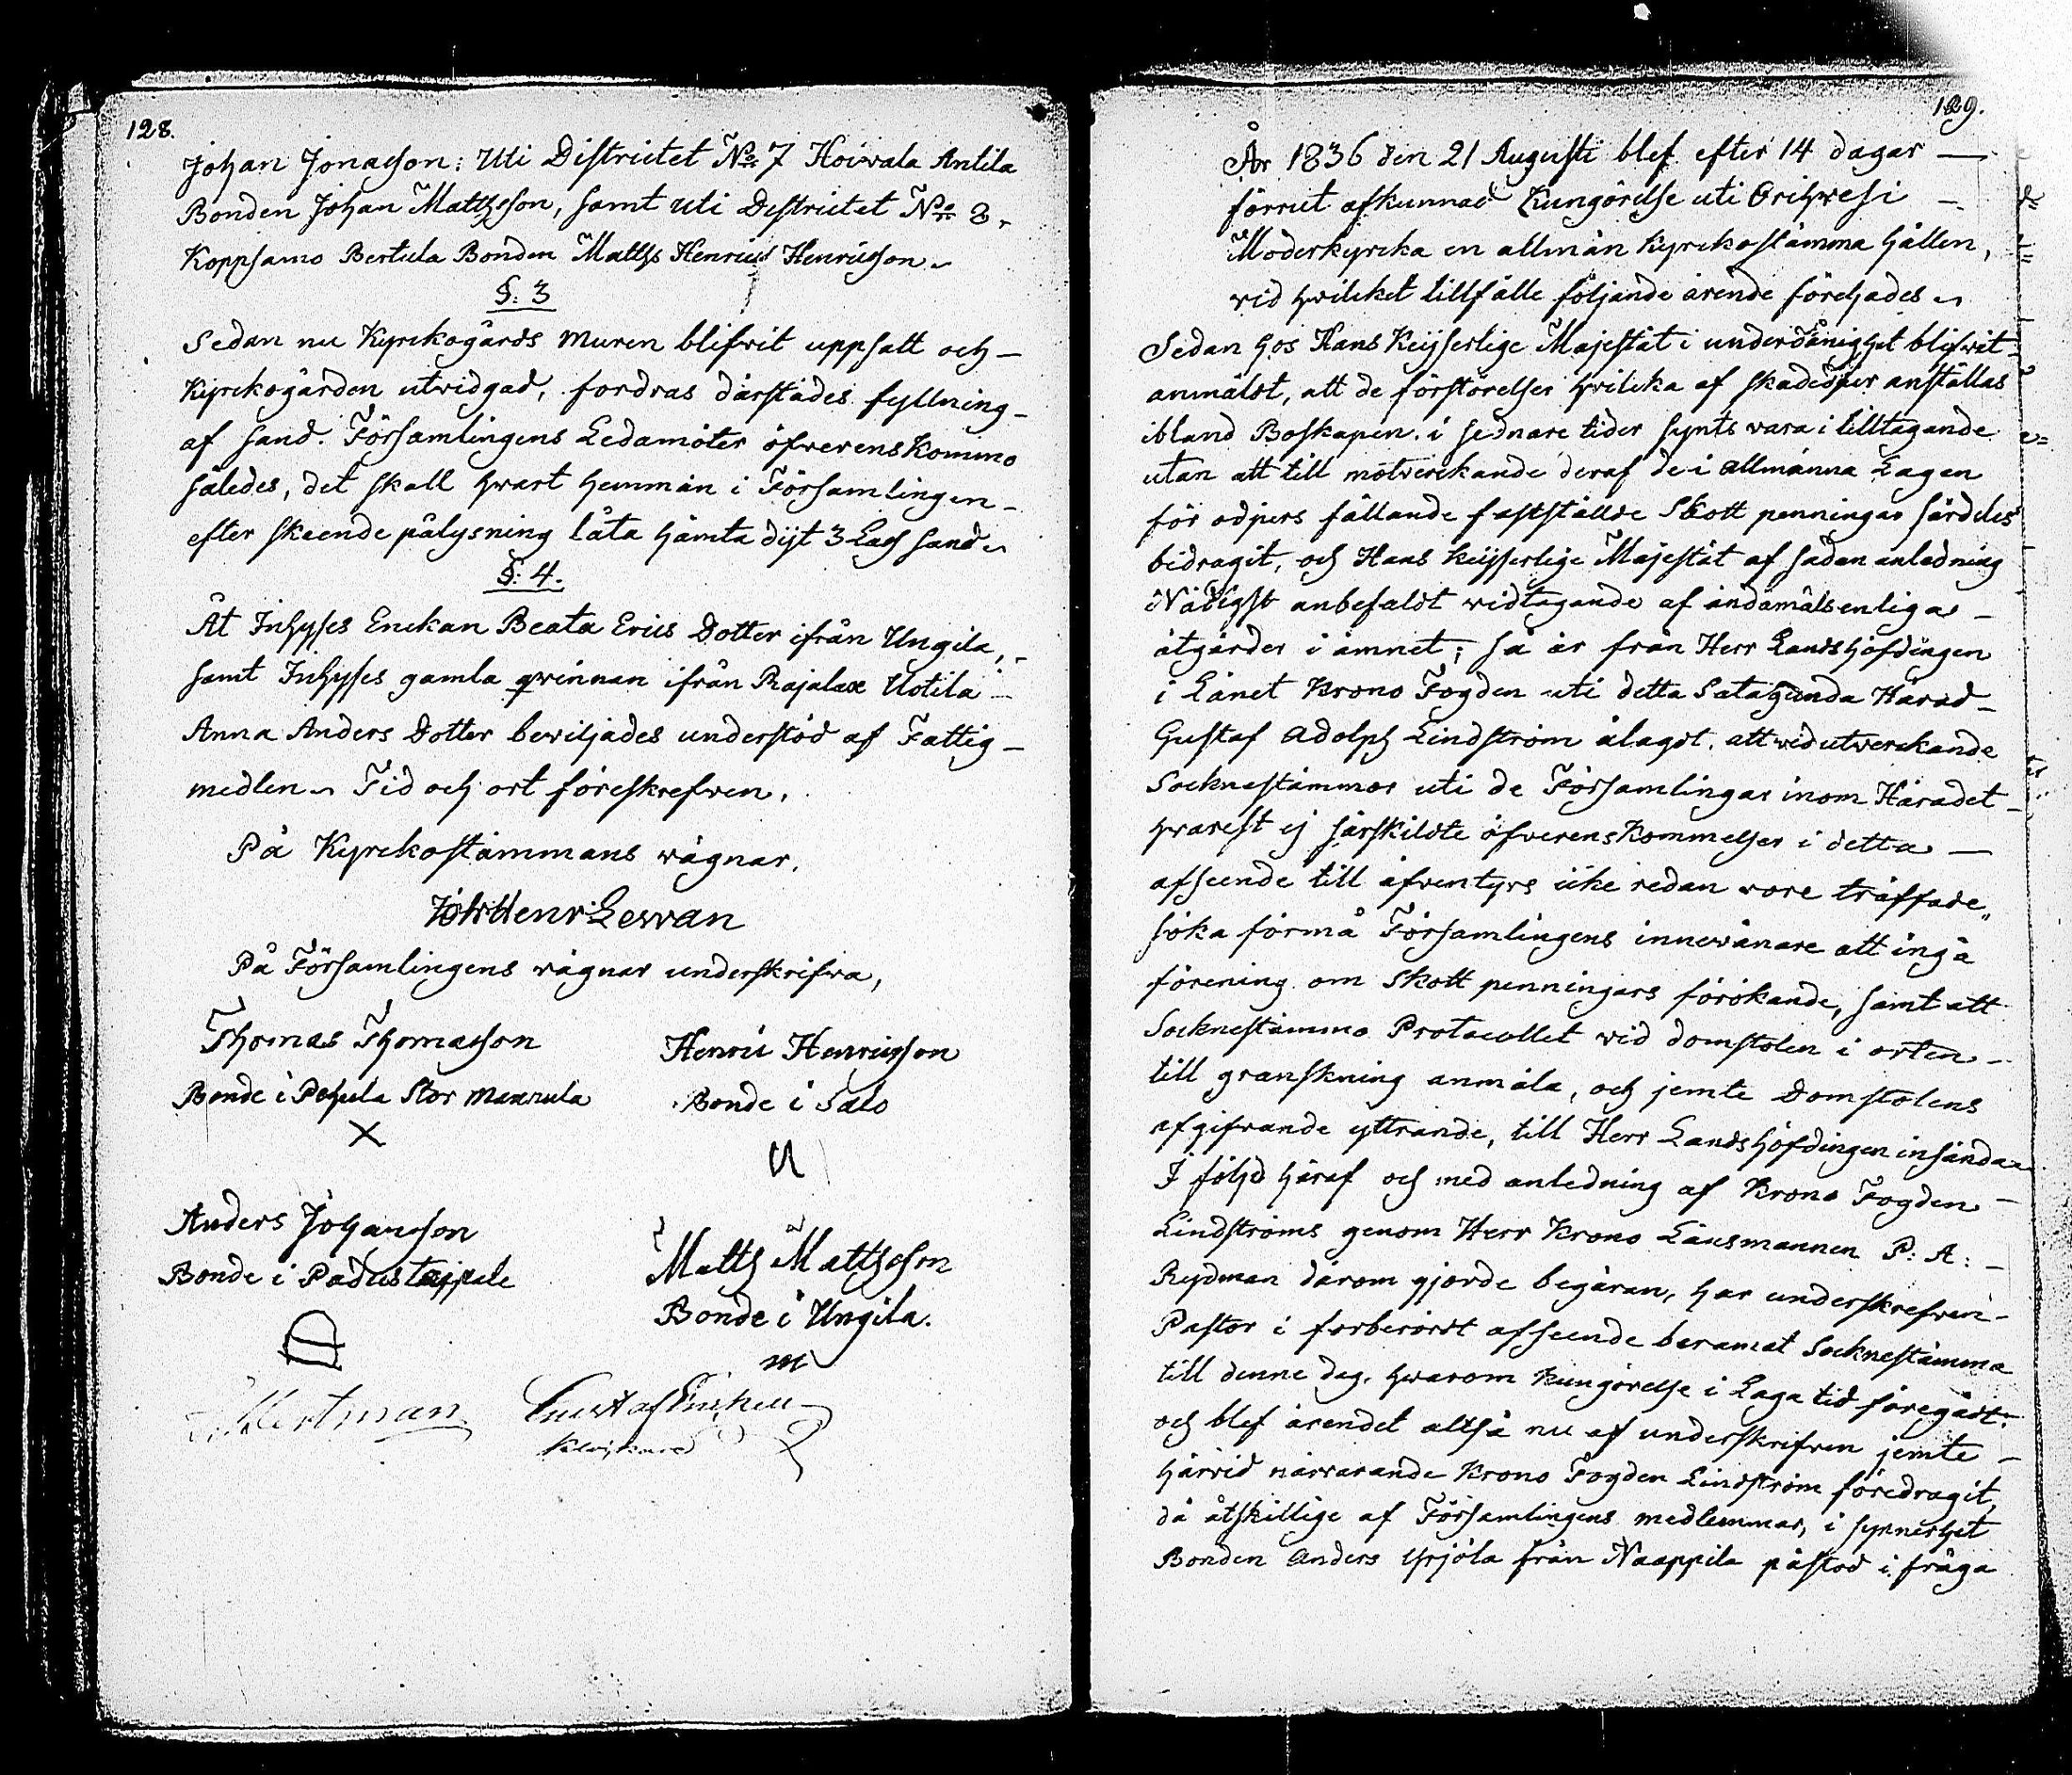 128.
Johan Jonasson: Uti Districtet No 7 Hoivala Antila
Bonden Johan Mattsson, samt uti Districtet No 8.
Koppsamo Bertula Bonden Matths Henrics Henricsson.
§: 3
Sedan nu Kyrckogårds muren blifvit uppsatt och —
Kyrckogården utvidgad, fordras därstädes fyllning —
af sand. Församlingens Ledamöter öfverenskommo
således, det skall hvart hemman i Församlingen —
efter skeende pålysning låta hämta dijt 3 Lass sand.
§: 4.
Åt Inhyses Enckan Beata Erics Dotter ifrån Ungila, —
samt Inhyses gamla qvinnan ifrån Rajalax Uotila —
Anna Anders Dotter beviljades understöd af Fattig —
medlen. Tid och ort föreskrefven.
På Kyrckostämmans vägnar,
Joh: Henr: Levan
På Församlingens vägnar underskrifva,
Thomas Thomasson
Bonde i Pehula Stor
X
Henric Henricsson
Bonde i Salo
Anders Johansson
Bonde i Padustaipale
Matts Mattsson
Bonde i Ungila.
m
Gustaf
129.
År 1836 den 21 Augusti blef efter 14 dagar —
förrut afkunnad Kungörelse uti Orihvesi —
Moderkyrcka en allmän Kyrckostämma hållen,
vid hvilcket tillfälle följande ärende förehades.
Sedan hos Hans Keijserlige Majestät i underdånighet blifvit
anmäldt, att de förstörelser hvilcka af skadedjur anställas
ibland Boskapen i sednare tider synts vara i tilltagande
utan att till motverckande deraf de i allmänna Lagen
för odjurs fällande fastställde Skott penningar särdeles
bidragit, och Hans Keijserlige Majestät af sådan anledning
i Nåder anbefaldt vidtagande af ändamålsenliga —
åtgärder i ämnet; så är från Herr Landshöfdingen
i Länet Krono Fogden uti detta Satagunda Härad —
Gustaf Adolph Lindström ålagdt, att vid utverckande
Socknestämmor uti de Församlingar inom Häradet —
hvarest ej särskildte öfverenskommelser i detta —
afseende till äfventyrs icke redan vore träffade,
söka förmå Församlingens innevånare att ingå
förening om Skott penningars förökande, samt att
Socknestämmo Protocollet vid domstolen i orten —
till granskning anmäla, och jemte Domstolens
afgifvande yttrande, till Herr Landshöfdingen insända.
I följd häraf och med anledning af Krono Fogden —
Lindströms genom Herr Krono Länsmannen P: A: —
Rydman därom gjorde begäran, har underskrefven —
Pastor i förberördt afseende beramat Socknestämma
till denne dag, hvarom kungörelse i Laga tid föregådt:
och blef ärendet altså nu af underskrifven jemte —
härvid närvarande Krono Fogden Lindström föredragit,
då åtskillige af Församlingens medlemmar, i synnerhet
Bonden Anders Yrjölä från Naappila påstod i fråga